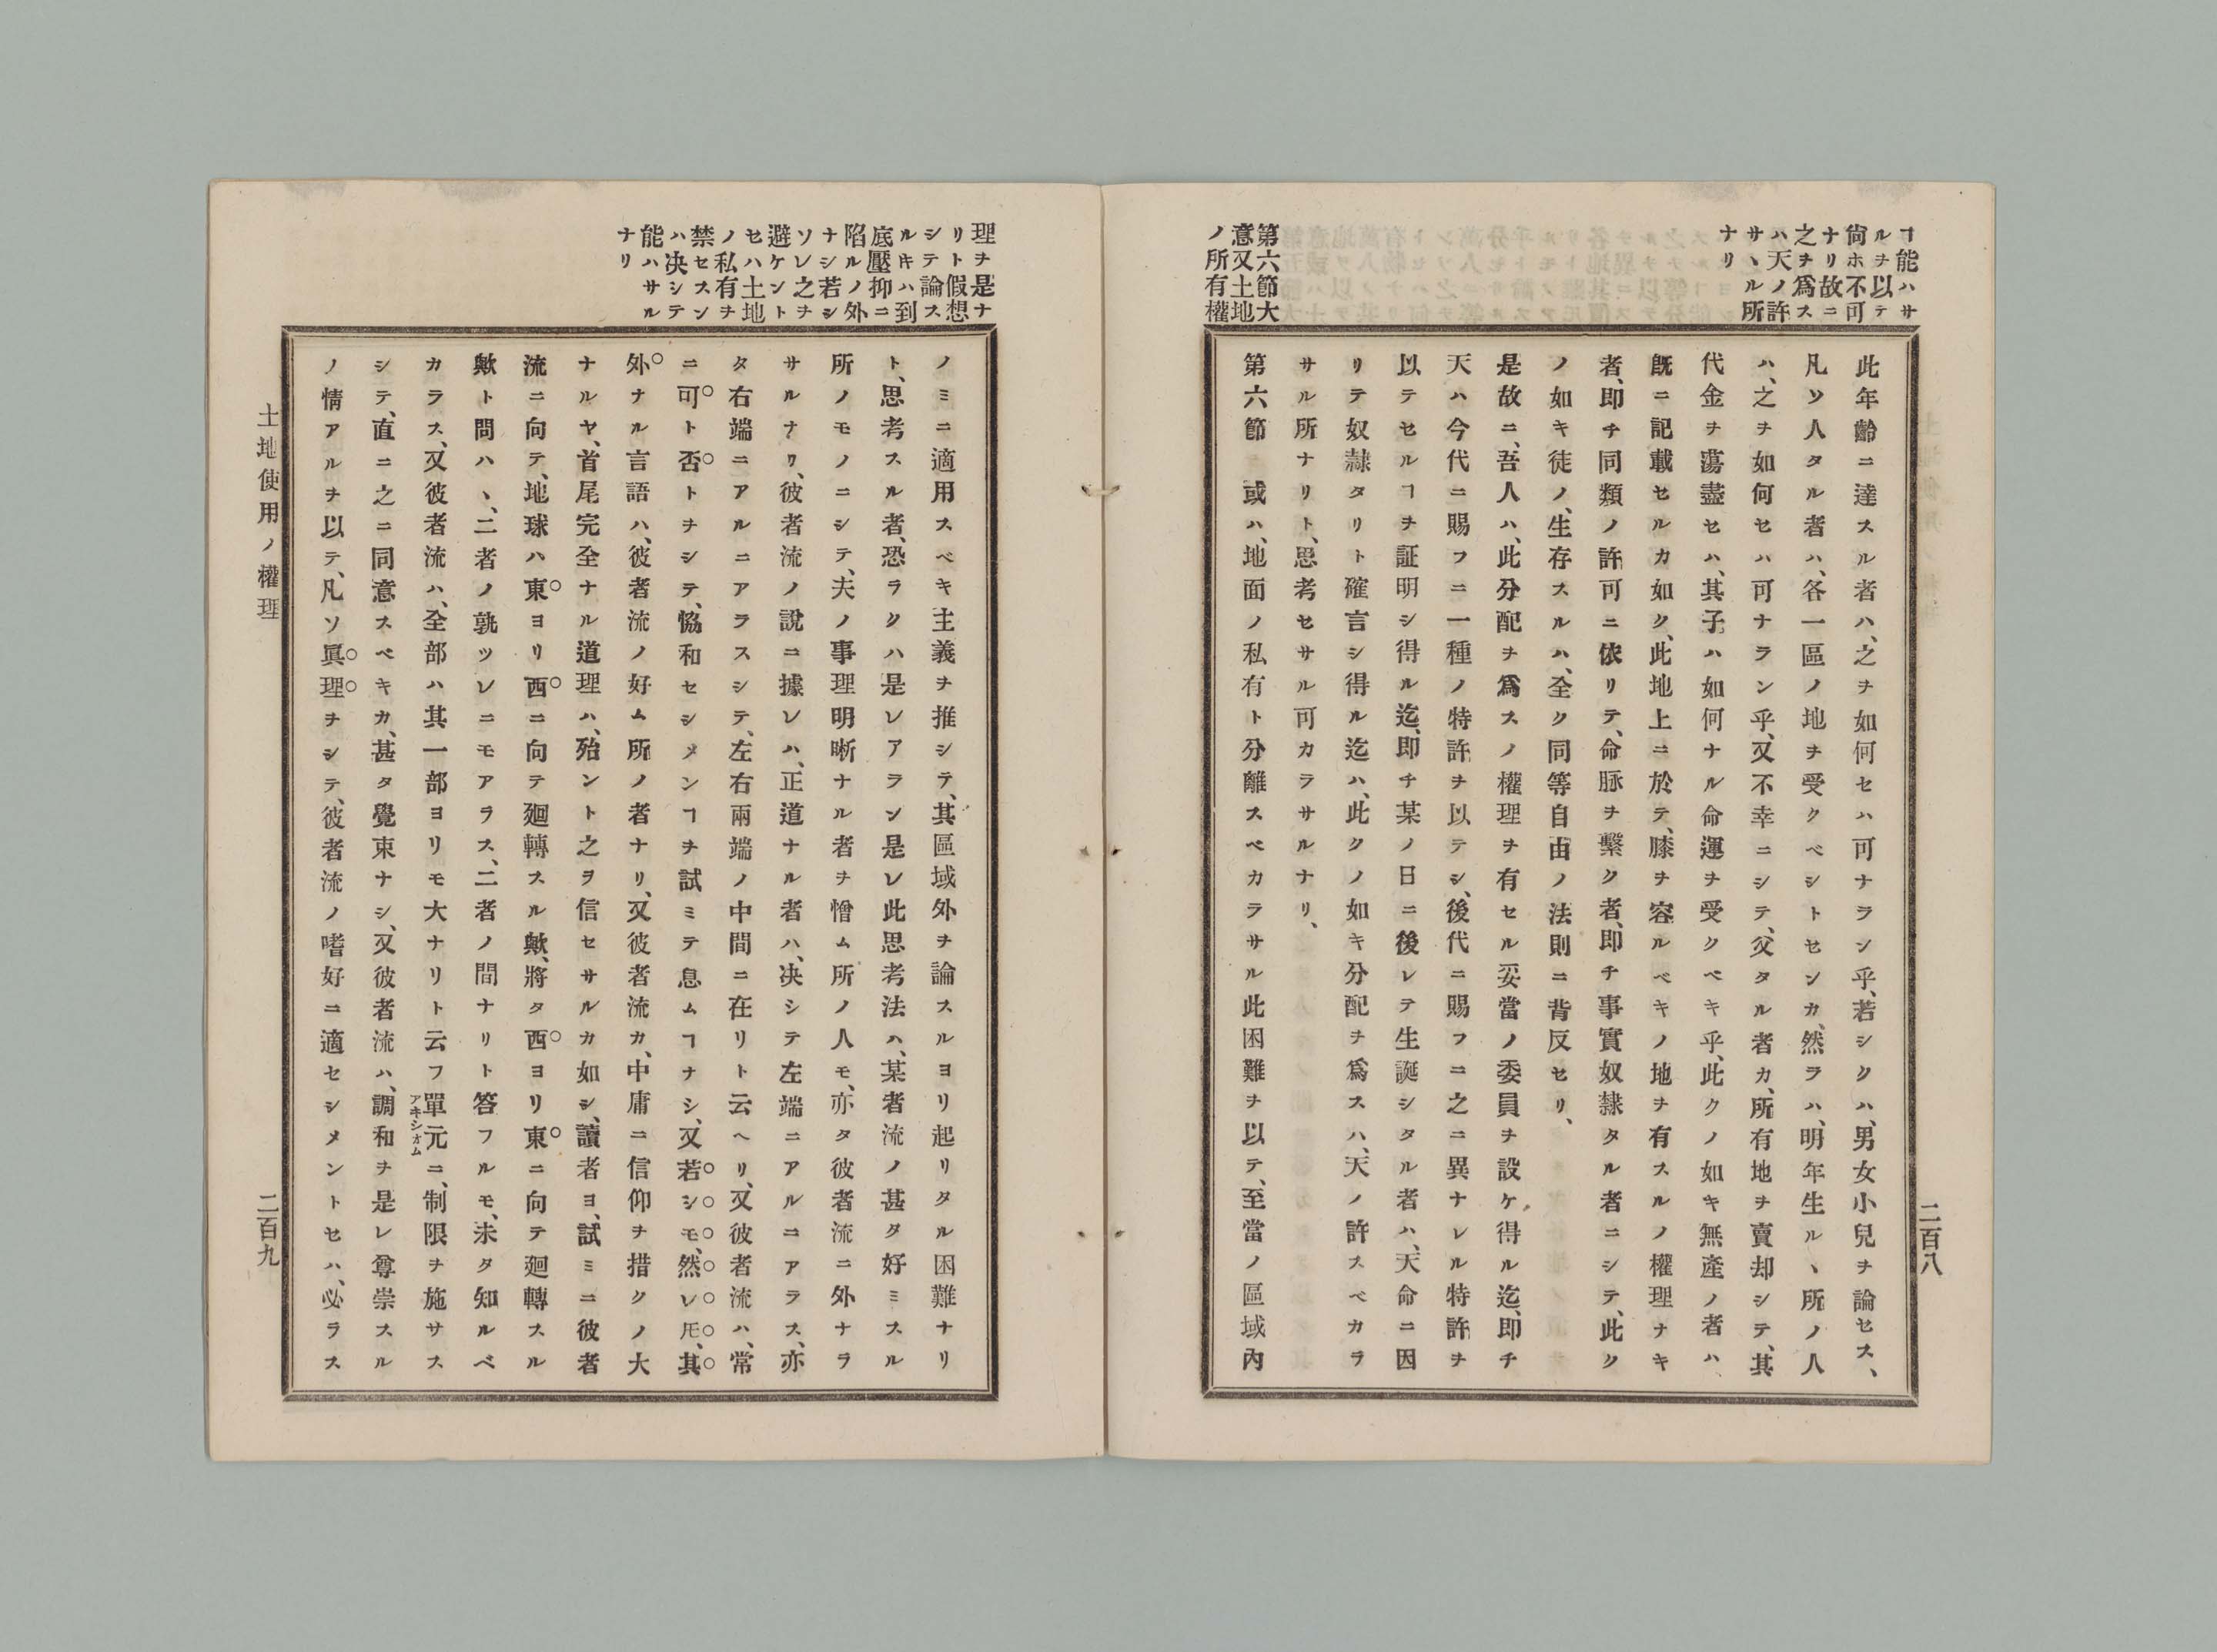 ヿ能ハサ
ルヲ以テ
尙ホ不可
ナリ故ニ
之ヲ爲ス
ハ天ノ許
サヽル所
ナリ
第六節大
意又土地
ノ所有權
此年齡ニ達スル者ハ、之ヲ如何セハ可ナラン乎、若シクハ、男女小兒ヲ論セス、
凡ソ人タル者ハ、各一區ノ地ヲ受クベシトセンカ、然ラハ、明年生ルヽ所ノ人
ハ、之ヲ如何セハ可ナラン乎、又不幸ニシテ、父タル者カ、所有地ヲ賣却シテ、其
代金ヲ蕩盡セハ、其子ハ如何ナル命運ヲ受クベキ乎、此クノ如キ無產ノ者ハ
既ニ記載セルカ如ク、此地上ニ於テ、膝ヲ容ルベキノ地ヲ有スルノ權理ナキ
者、即チ同類ノ許可ニ依リテ、命脉ヲ繫ク者、即チ事實奴隷タル者ニシテ、此ク
ノ如キ徒ノ、生存スルハ、全ク同等自由ノ法則ニ背反セリ、
是故ニ、吾人ハ、此分配ヲ爲スノ權理ヲ有セル妥當ノ委員ヲ設ケ得ル迄、即チ
天ハ今代ニ賜フニ一種ノ特許ヲ以テシ、後代ニ賜フニ之ニ異ナレル特許ヲ
以テセルヿヲ証明シ得ル迄、即チ某ノ日ニ後レテ生誕シタル者ハ、天命ニ因
リテ奴隷タリト確言シ得ル迄ハ、此クノ如キ分配ヲ爲スハ、天ノ許スベカラ
サル所ナリト、思考セサル可カラサルナリ、
第六節 或ハ、地面ノ私有ト分離スベカラサル此困難ヲ以テ、至當ノ區域內
二百八
理ヲ是ナ
リト假想
シテ論ス
ルキハ到
底壓抑ニ
陷ルノ外
ナシ若シ
ソレ之ヲ
避ケント
セハ土地
ノ私有ヲ
禁セスン
ハ決シテ
能ハサル
ナリ
ノミニ適用スベキ主義ヲ推シテ、其區域外ヲ論スルヨリ起リタル困難ナリ
ト、思考スル者、恐ラクハ是レアラン是レ此思考法ハ、某者流ノ甚タ好ミスル
所ノモノニシテ、夫ノ事理明晰ナル者ヲ憎ム所ノ人モ、亦タ彼者流ニ外ナラ
サルナリ、彼者流ノ說ニ據レハ、正道ナル者ハ、決シテ左端ニアルニアラス、亦
タ右端ニアルニアラスシテ、左右兩端ノ中間ニ在リト云ヘリ、又彼者流ハ、常
ニ可ト否トヲシテ、恊和セシメンヿヲ試ミテ息ムヿナシ、又若シモ、然レ𪜈、其
外ナル言語ハ、彼者流ノ好ム所ノ者ナリ、又彼者流カ、中庸ニ信仰ヲ措クノ大
ナルヤ、首尾完全ナル道理ハ、殆ント之ヲ信セサルカ如シ、讀者ヨ、試ミニ彼者
流ニ向テ、地球ハ東ヨリ西ニ向テ廻轉スル歟、將タ西ヨリ東ニ向テ廻轉スル
歟ト問ハヽ、二者ノ孰ツレニモアラス、二者ノ間ナリト答フルモ、未タ知ルベ
カラス、又彼者流ハ、全部ハ其一部ヨリモ大ナリト云フ單元ニ、制限ヲ施サス
アキシオム
シテ、直ニ之ニ同意スベキカ、甚タ覺束ナシ、又彼者流ハ、調和ヲ是レ尊崇スル
ノ情アルヲ以テ、凡ソ眞理ヲシテ、彼者流ノ嗜好ニ適セシメントセハ、必ラス
土地使用ノ權理
二百九